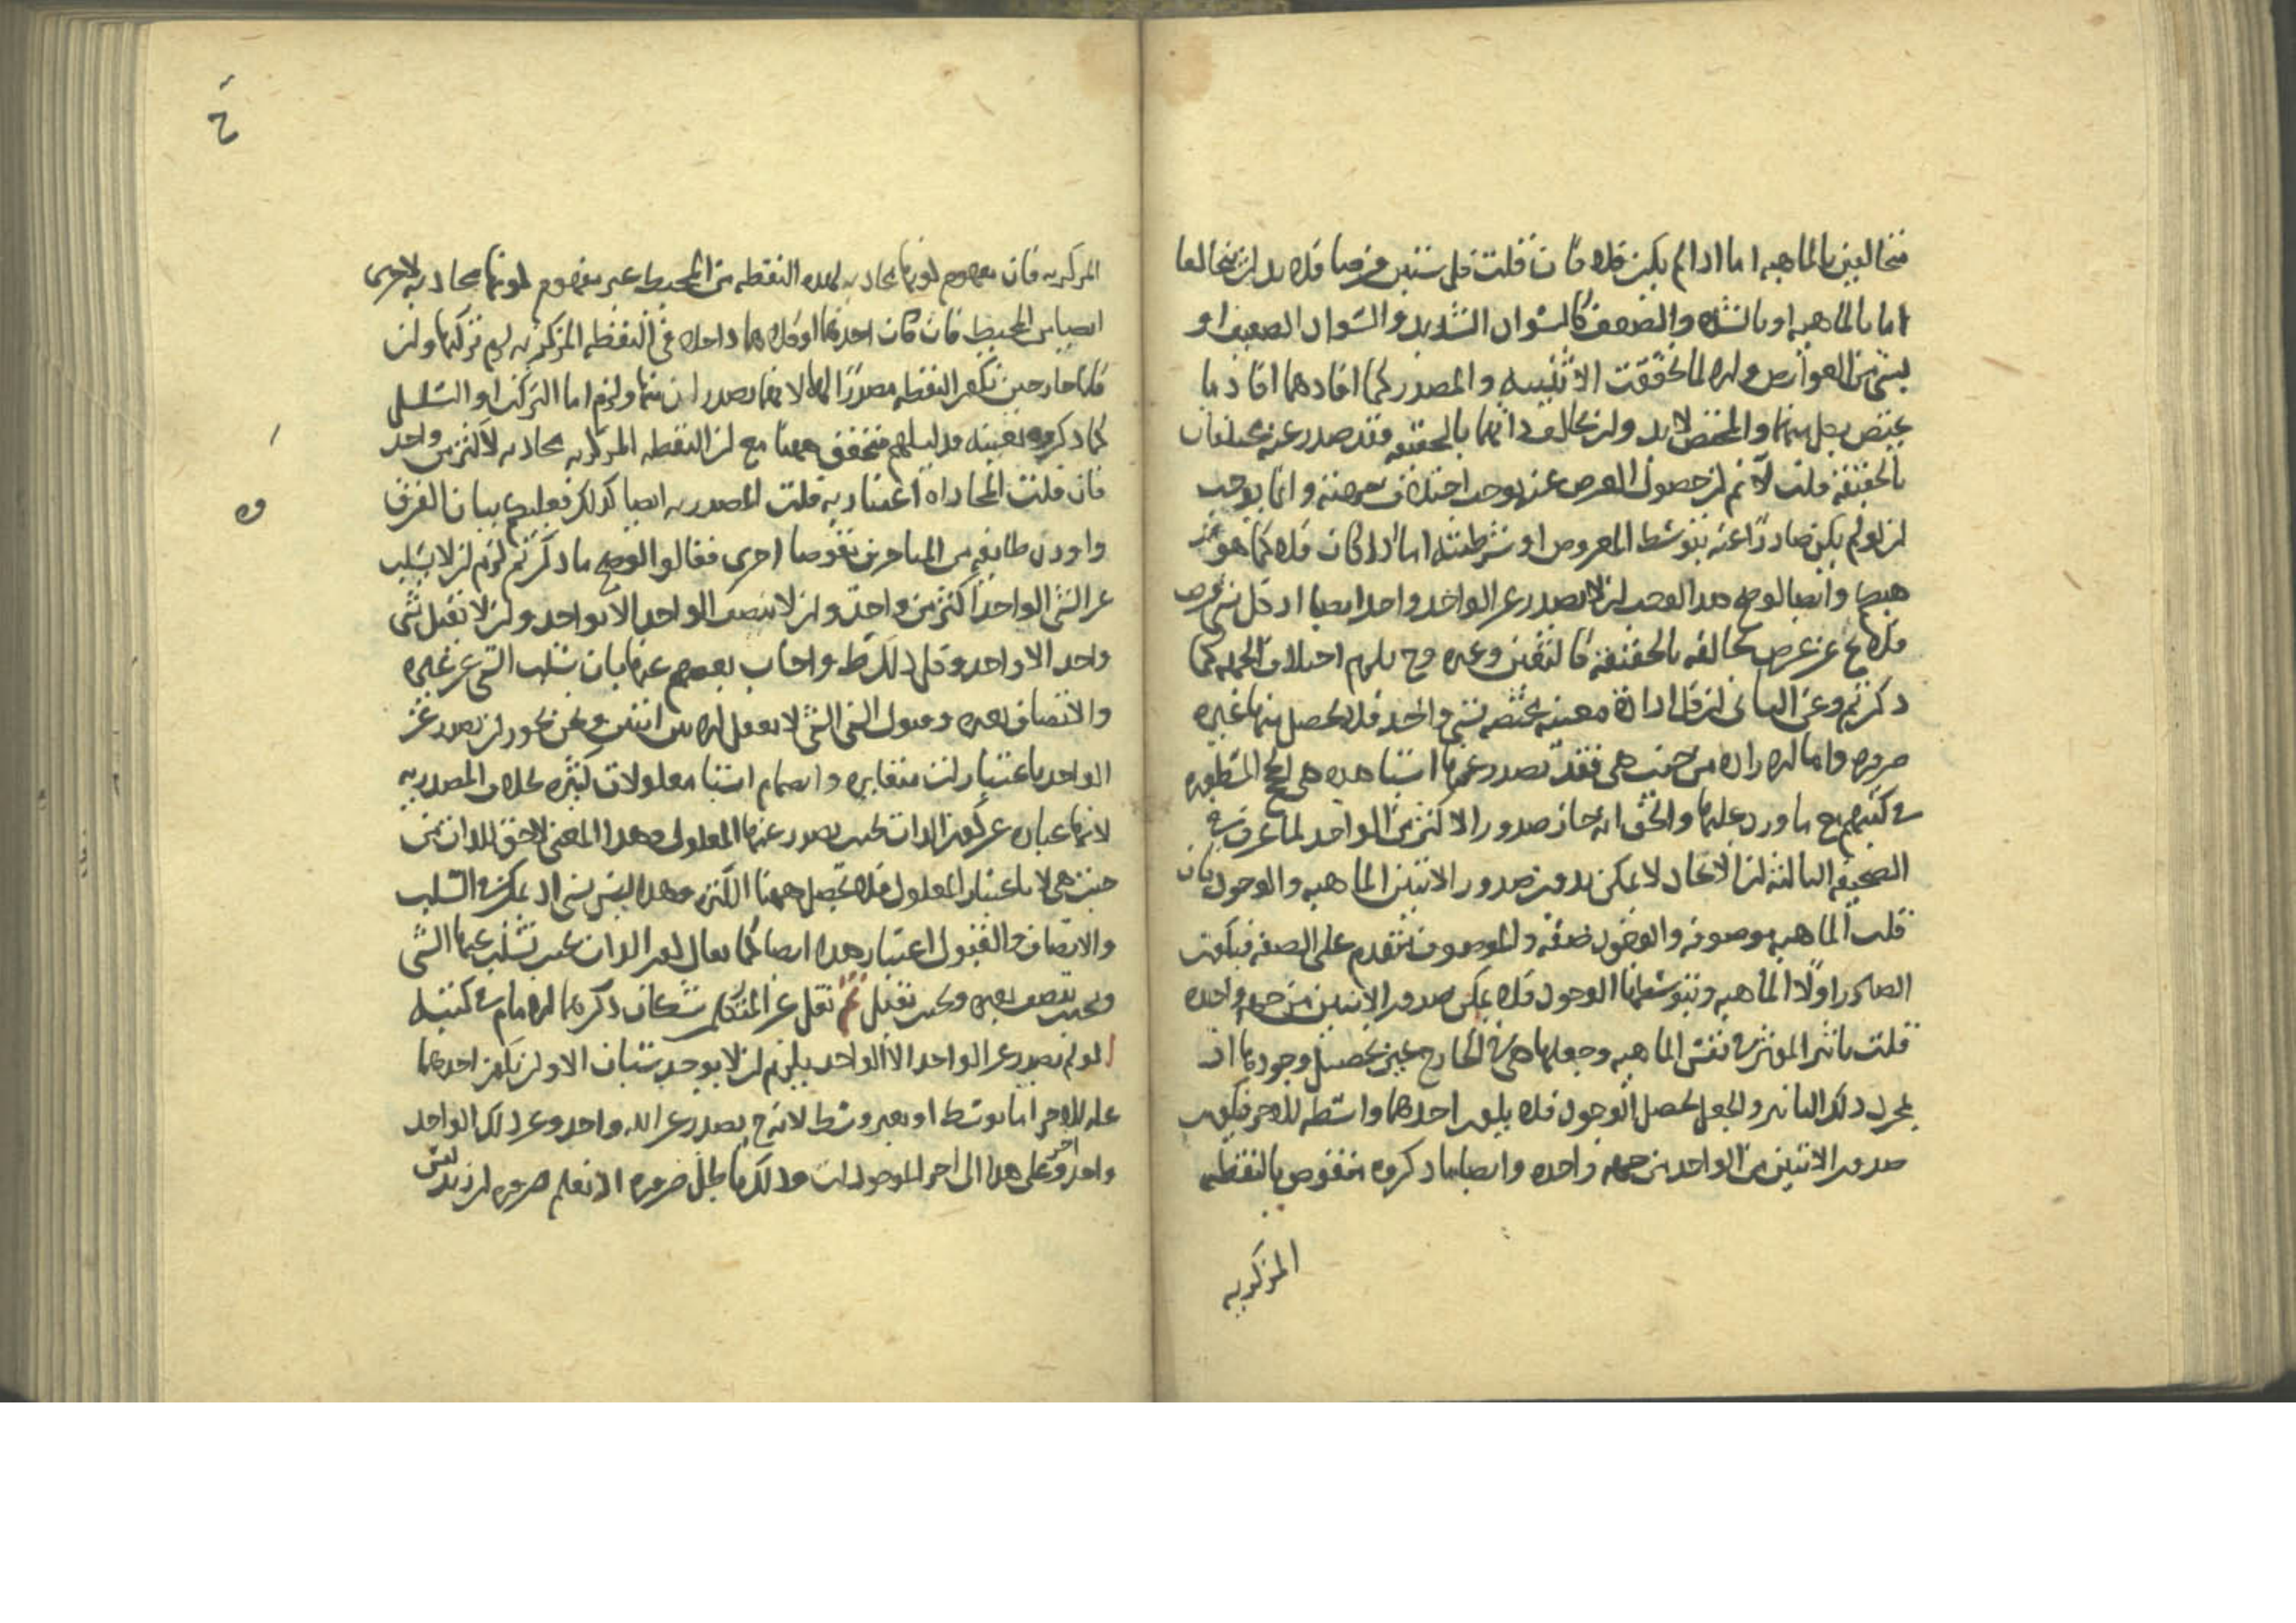 متخالفين بالماهيه اما اذا لم يكن فلا فان قلت كل شيئين فرضا فلا بد ان يتخالفا
اما بالماهيه او بالشده والضعف كالسواد الشديد والسواد الضعيف او
بشي من العوارض والا لما تحققت الاثنينيه والمصدر كما افادهما افاد ما
يختص بكل منهما والمختص لا بد وان يخالف بالحقيقه فقد صدر عنه مختلفان
بالحقيقه قلت لانم ان حصول العرض عنه يوجب اختلاف وانما يوجب
ان لو لم يكن صادرا عنه بتوسط المعروض او شرطيته اما اذا كان فلا كما هو
ههنا وايضا لو صح هذا لوجب ان لا يصدر عن الواحد واحد ايضا اذ كل شي فرض
فلا يخ عن عرض يخالفه بالحقيقه كالتعين وغيره وح يلزم اختلاف الجهه كما
ذكرتم وعن الثاني ان كل اراده معينه مختصه بشي واحد فلا يحصل منها غيره
ضروره واما الاراده من حيث هي فقد تصدر عنها اشيا هذه هي الحجج المسطوره
في كتبهم مع ما ورد عليها والحق انه جاز صدور الاكثر من الواحد لما عرفت في
الصحيفه الثالثه ان الايجاد لا يمكن بدون صدور الاثنين الماهيه والوجود فان
قلت الماهيه موصوفه والوجود صفه والموصوف متقدم على الصفه فيكون
الصادر اولا الماهيه وبتوسطها الوجود فلا يمكن صدور الاثنين من جهه واحده
قلت تاثير الموثر في نفس الماهيه وجعلها هي في الخارج عين تحصيل وجودها اذ
بمجرد ذلك التاثير والجعل يحصل الوجود فلا يكون احدهما واسطه للاخر فيكون
صدور الاثنين من الواحد من جهه واحده وايضا ما ذكروه منقوض بالنقطه
المركزيه
المركزيه فان مفهوم كونها محاذيه لهذه النقطه من المحيط غير مفهوم كونها محاذيه لاخرى
ايضا من المحيط فان كان احدهما او كلاهما داخلا في النقطه المركزيه لزم تركبها وان
كانا خارجين تكون النقطه مصدرا لهما لانهما يصدران منها ولزم اما التركب او التسلسل
كما ذكروه بعينه فدليلهم متحقق ههنا مع ان النقطه المركزيه محاذيه لاكثر من واحد
فان قلت المحاذاه اعتباريه قلت المصدريه ايضا كذلك فعليكم ببيان الفرق
واورد طايفه من المتاخرين نقوضا اخرى فقالوا لو صح ما ذكرتم لزم ان لا يسلب
عن الشي الواحد اكثر من واحد وان لا يتصف الواحد الا بواحد وان لا يقبل شي
واحد الا واحدا وكل ذلك بط واجاب بعضهم عنها بان سلب الشي عن غيره
والاتصاف بغيره وقبول الشي الشي لا يعقل الا بين اثنين ونحن نجوز ان يصدر عن
الواحد باعتبارات متغايره وانضمام اشيا معلولات كثيره بخلاف المصدريه
لانها عباره عن كون الذات بحيث يصدر عنها المعلول وهذا المعنى لاحق للذات من
حيث هي لا باعتبار المعلول فلا يحصل ههنا الكثره وهذا ليس بشي اذ يمكن في السلب
والاتصاف والقبول اعتبار هذا ايضا كما يقال كون الذات بحيث تسلب عنها الشي
وبحيث يتصف بغيره وبحيث تقبل ثم نقل عن المتكلمين شكان ذكرهما الامام في كتبه
ا لو لم يصدر عن الواحد الا الواحد يلزم ان لا يوجد شيئان الا وان يكون احدهما
عله للاخر اما بوسط او بغير وسط لانه ح يصدر عن الله واحد وعن ذلك الواحد
واحد اخر وعلى هذا الى اخر الموجودات وذلك باطل ضروره اذ نعلم ضروره ان زيدا ليس